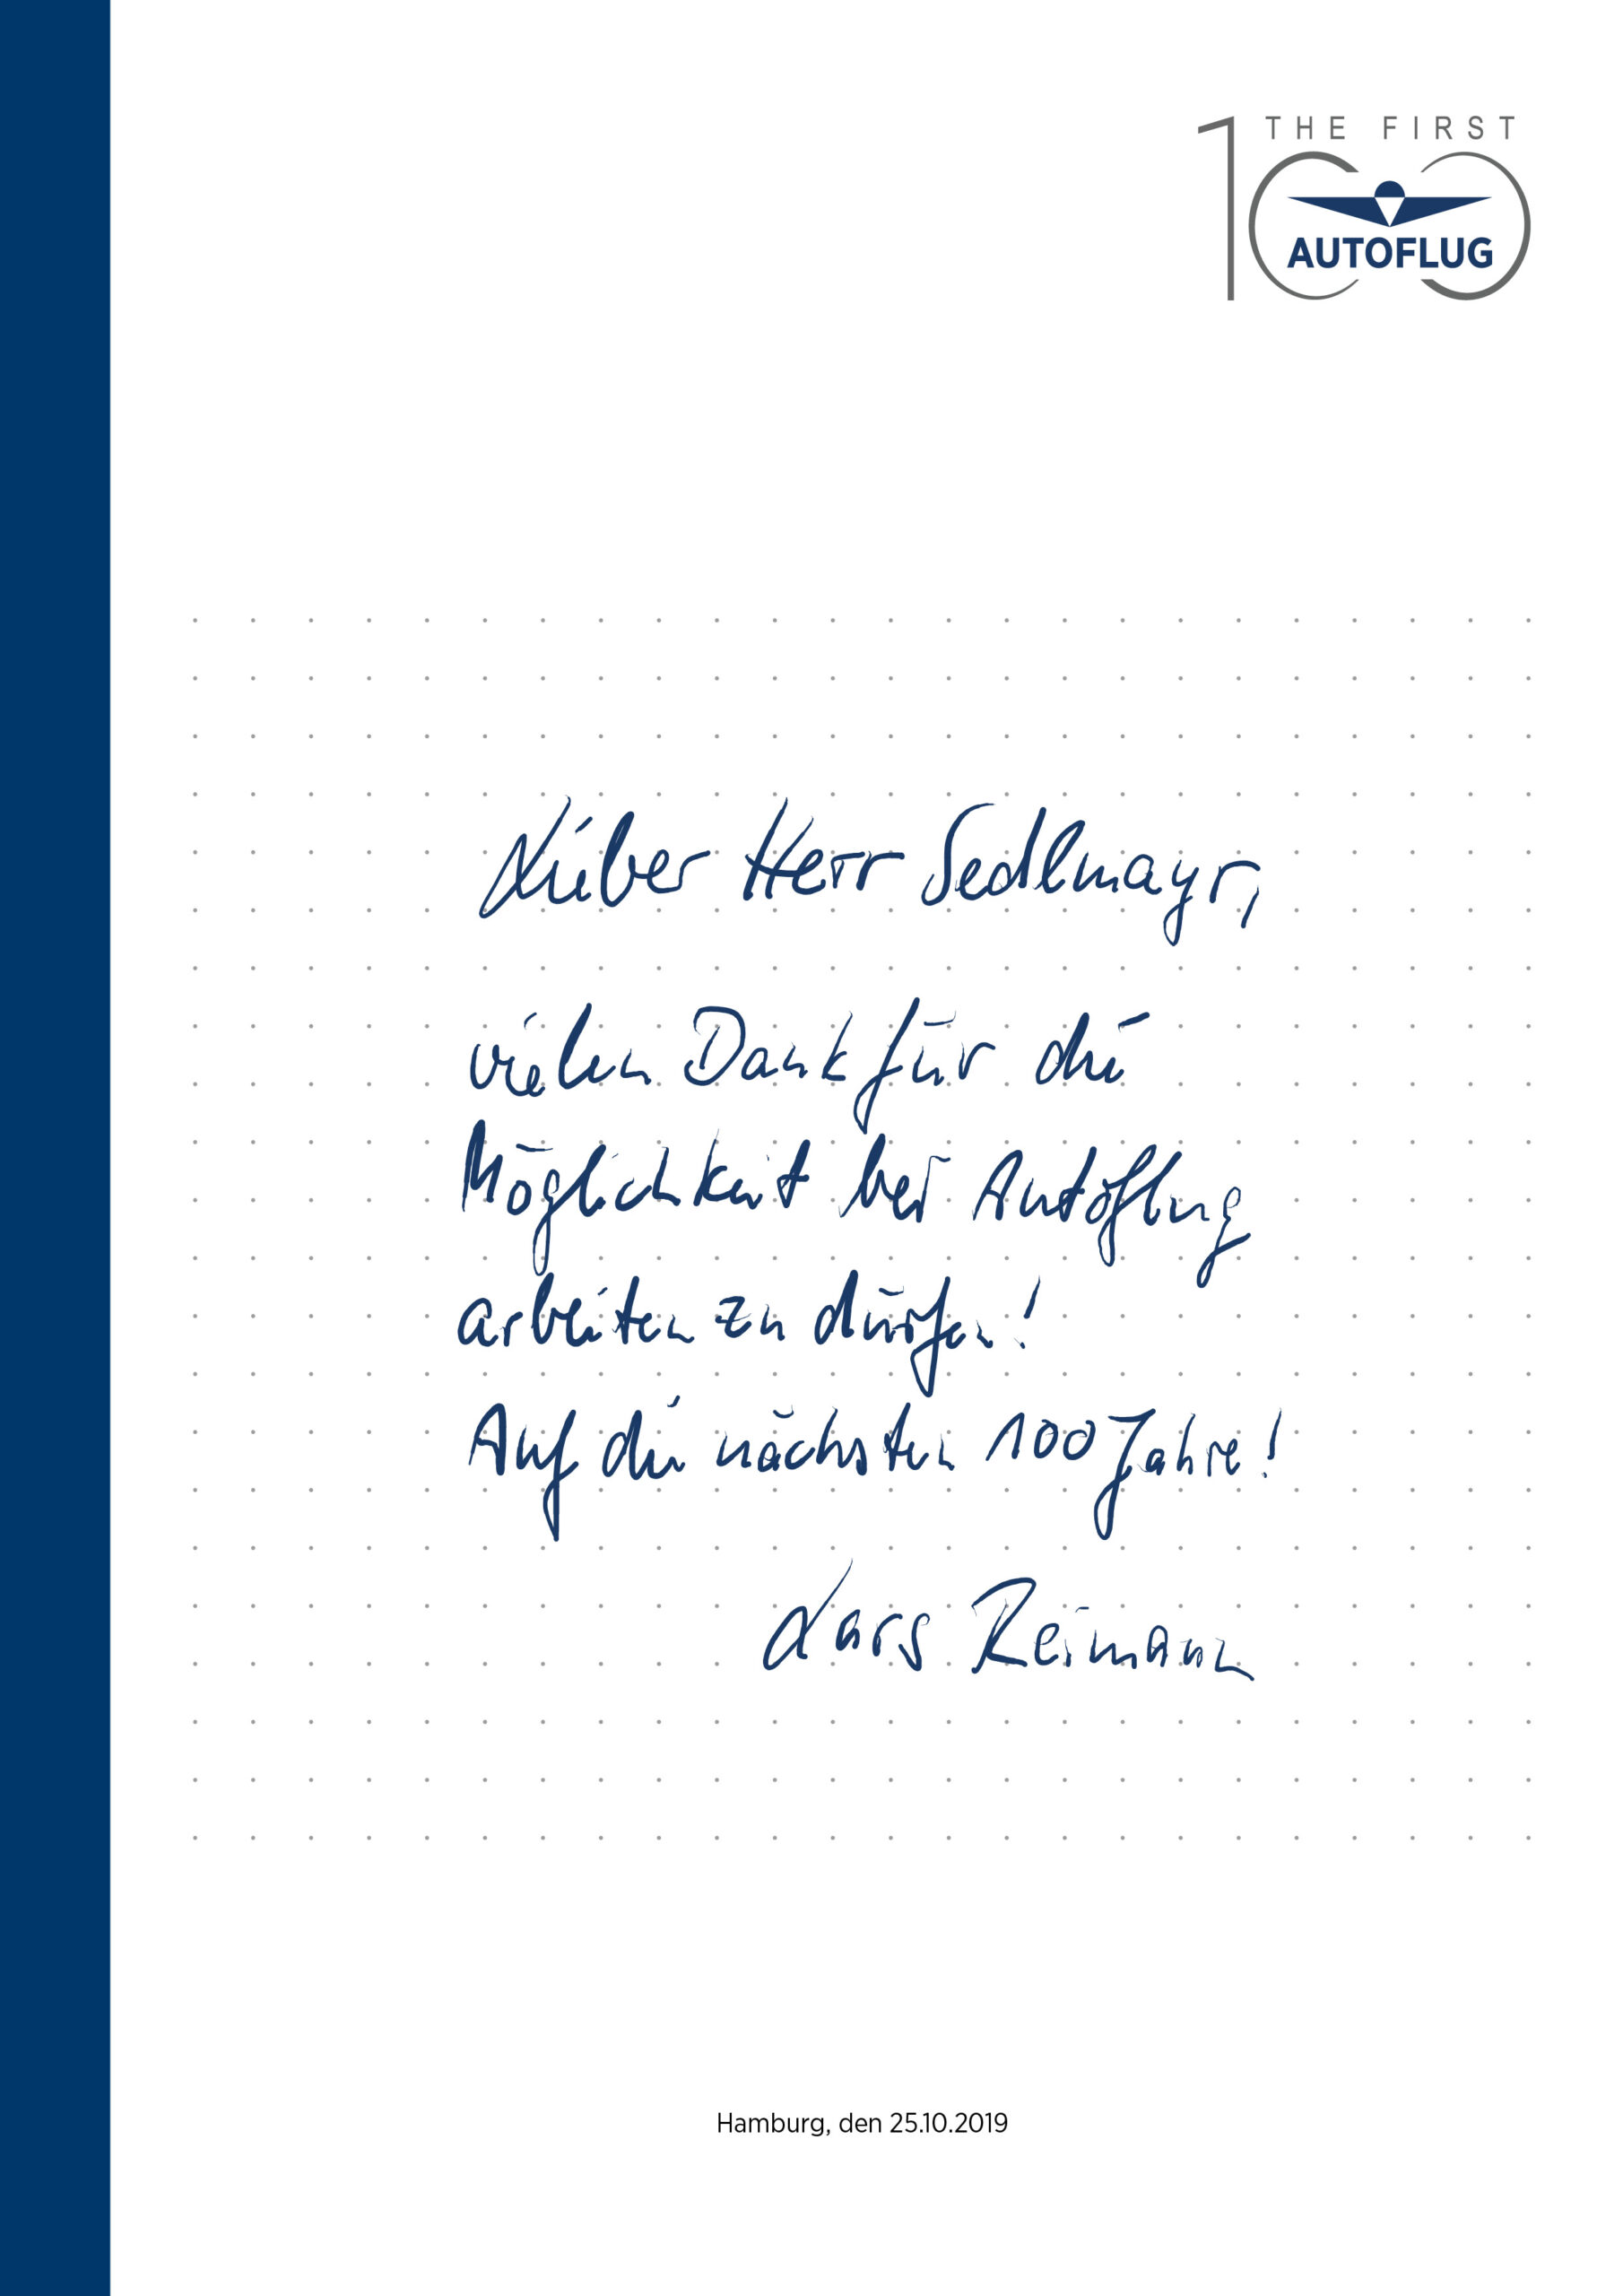 THE FIRST
100
AUTOFLUG
Lieber Herr Sedlmayr,
vielen Dank für die
Möglichkeit bei Autoflug
arbeiten zu dürfen!
Auf die nächsten 100 Jahre!
Lars Reimann
Hamburg, den 25.10.2019